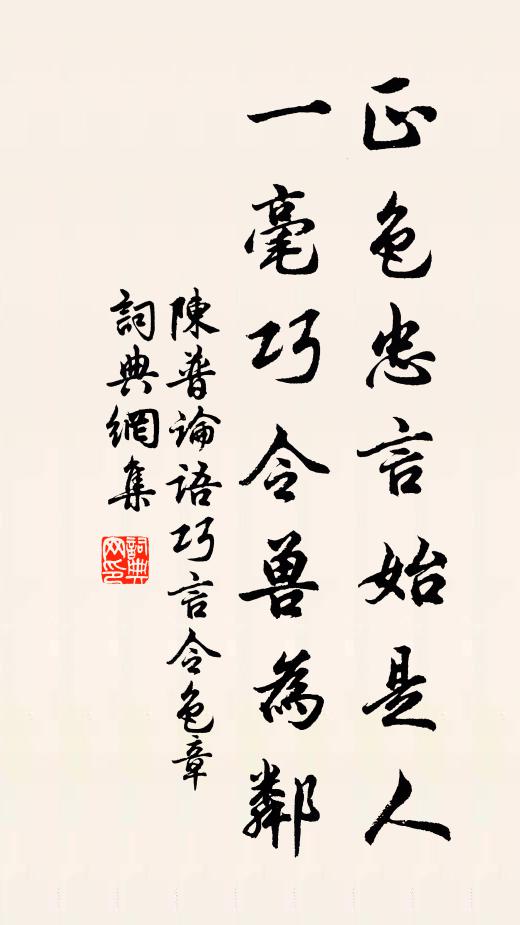 正色忠言始是人
一毫巧令兽為鄰
陳普論語巧言令色章
詞典網集
詞典
网印